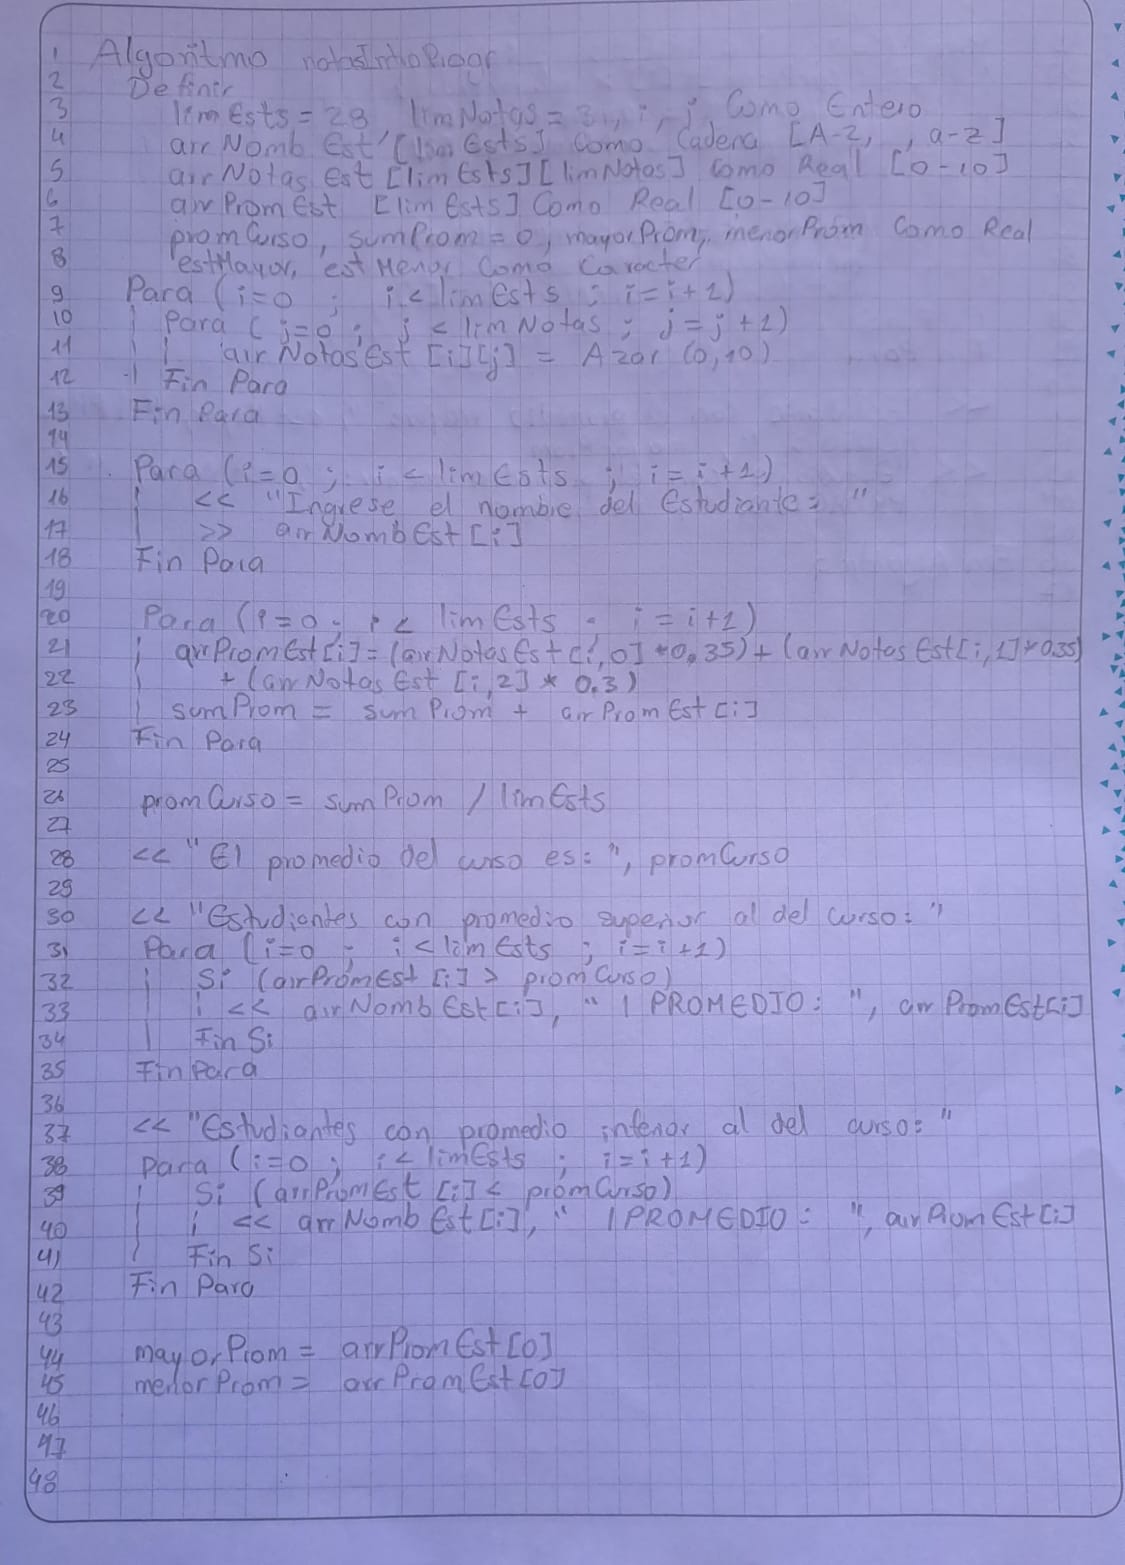 1 Algoritmo notasIntroProgr
2 Definir
3 limEsts = 28, limNotas = 3, i, j, Como Entero
4 arrNombEst [limEsts] Como Cadena [A-Z, , a-z]
5 arrNotasEst [limEsts][limNotas] Como Real [0-10]
6 arrPromEst [limEsts] Como Real [0-10]
7 promCurso, sumProm = 0, mayorProm, menorProm Como Real
8 estMayor, estMenor Como Caracter
9 Para (i=0 ; i < limEsts ; i=i+1)
10 Para (j=0 ; j < limNotas ; j=j+1)
11 arrNotasEst [i][j] = Azar (0,10)
12 Fin Para
13 Fin Para
14
15 Para (i=0 ; i < limEsts ; i=i+1)
16 << "Ingrese el nombre del Estudiante: "
17 >> arrNombEst [i]
18 Fin Para
19
20 Para (i=0 ; i < limEsts ; i=i+1)
21 arrPromEst[i]= (arrNotasEst[i,0] *0.35) + (arrNotasEst[i,1]*0.35)
22 + (arrNotasEst [i,2] * 0.3)
23 sumProm = sumProm + arrPromEst[i]
24 Fin Para
25
26 promCurso = sumProm / limEsts
27
28 << "El promedio del curso es: ", promCurso
29
30 << "Estudiantes con promedio superior al del curso: "
31 Para (i=0 ; i < limEsts ; i=i+1)
32 Si (arrPromEst [i] > promCurso)
33 << arrNombEst[i], " | PROMEDIO: ", arrPromEst[i]
34 Fin Si
35 Fin Para
36
37 << "Estudiantes con promedio inferior al del curso: "
38 Para (i=0 ; i < limEsts ; i=i+1)
39 Si (arrPromEst [i] < promCurso)
40 << arrNombEst[i], " | PROMEDIO: ", arrPromEst[i]
41 Fin Si
42 Fin Para
43
44 mayorProm = arrPromEst[0]
45 menorProm = arrPromEst[0]
46
47
48